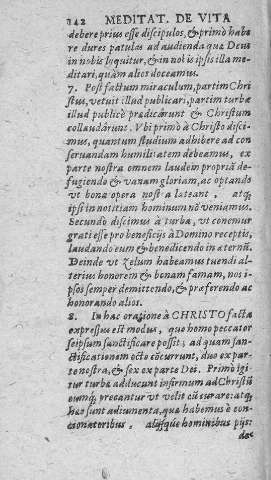 142 MEDITAT. DE VITA
debere prius esse discipulos, & primò habe
re aures patulas ad audienda quæ Deus
in nobis loquitur, & in nobis ipsis illa me
ditari, quàm alios doceamus.
7. Post factum miraculum, partim Chri
stus, vetuit illud publicari, partim turbæ
illud publicè prædicârunt & Christum
collaudârunt. Vbi primò à Christo disci-
mus, quantum studium adhibere ad con
seruandam humilitatem debeamus, ex
parte nostra omnem laudem propriã de-
fugiendo & vanam gloriam, ac optando
vt bona opera nostra lateant, atq;
ipsi in notitiam hominum nõ veniamus.
Secundò discimus à turba, vt conemur
grati esse pro beneficijs à Domino receptis,
laudando eum & benedicendo in æternũ.
Deinde vt zelum habeamus tuendi al-
terius honorem & bonam famam, nos i-
psos semper demittendo, & præferendo ac
honorando alios.
8. In hac oratione à CHRISTO facta
expressus est modus, quo homo peccator
seipsum sanctificare possit; ad quam san-
ctificationem octo cõcurrunt, duo ex par-
te nostra, & sex ex parte Dei. Primò igi-
tur turba adducunt infirmum ad Christũ
eumq; precantur vt velit eũ curare: atq;
hæc sunt adiumenta, quæ habemus è con-
cionatoribus, alijsque hominibus pijs: